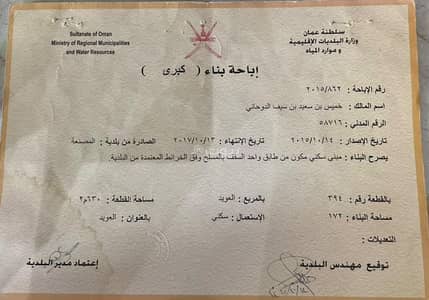 Sultanate of Oman
Ministry of Regional Municipalities
and Water Resources
سلطنة عمان
وزارة البلديات الإقليمية
و موارد المياه
إباحة بناء ( كبرى )
رقم الإباحة : ٢٠١٥/٨٦٢
اسم المالك : خميس بن سعيد بن سيف الدوحاني
الرقم المدني : ٥٨٧١٦
تاريخ الإصدار : ٢٠١٥/١٠/١٤ تاريخ الإنتهاء : ٢٠١٧/١٠/١٣ الصادرة من بلدية : المصنعة
يصرح البناء : مبنى سكني مكون من طابق واحد السقف بالمسلح وفق الخرائط المعتمدة من البلدية.
بالقطعة رقم : ٣٩٤ بالمربع : العويد مساحة القطعة : ٦٣٠م٢
مساحة البناء : ١٧٢ الاستعمال : سكني بالعنوان : العويد
التعديلات :
توقيع مهندس البلدية
إعتماد مدير البلدية